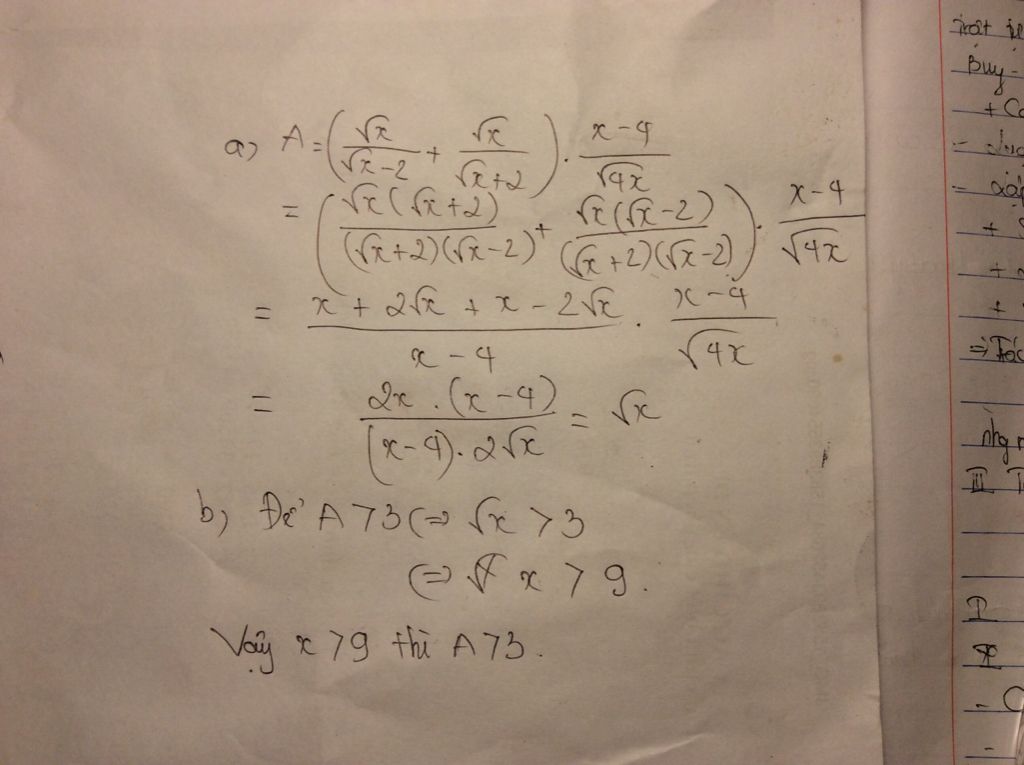 a) A = (√x/(√x-2) + √x/(√x+2)) . (x-4)/√4x
= (√x(√x+2)/((√x+2)(√x-2)) + √x(√x-2)/((√x+2)(√x-2))) . (x-4)/√4x
= (x + 2√x + x - 2√x)/(x-4) . (x-4)/√4x
= (2x . (x-4))/((x-4). 2√x) = √x
b) Để A > 3 (=> √x > 3
(=> x > 9.
Vậy x > 9 thì A > 3.